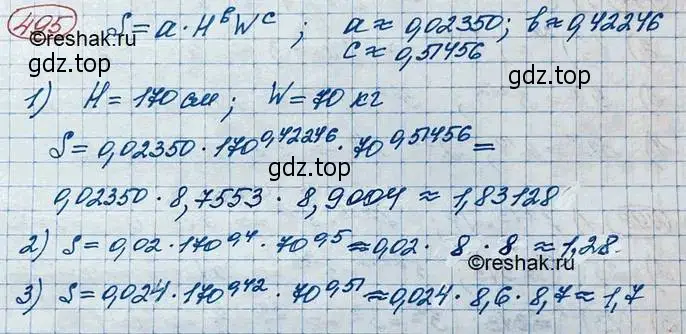 495 S = a · H^b W^c ; a ≈ 0,02350; b ≈ 0,42246
c ≈ 0,51456
©reshak.ru
gdz.top
1) H = 170 см; W = 70 кг
gdz.top
S = 0,02350 · 170^0,42246 · 70^0,51456 =
gdz.top
0,02350 · 8,7553 · 8,9004 ≈ 1,83128
©reshak.ru
2) S = 0,02 · 170^0,4 · 70^0,5 ≈ 0,02 · 8 · 8 ≈ 1,28.
gdz.top
©reshak.ru
3) S = 0,024 · 170^0,42 · 70^0,51 ≈ 0,024 · 8,6 · 8,7 ≈ 1,7